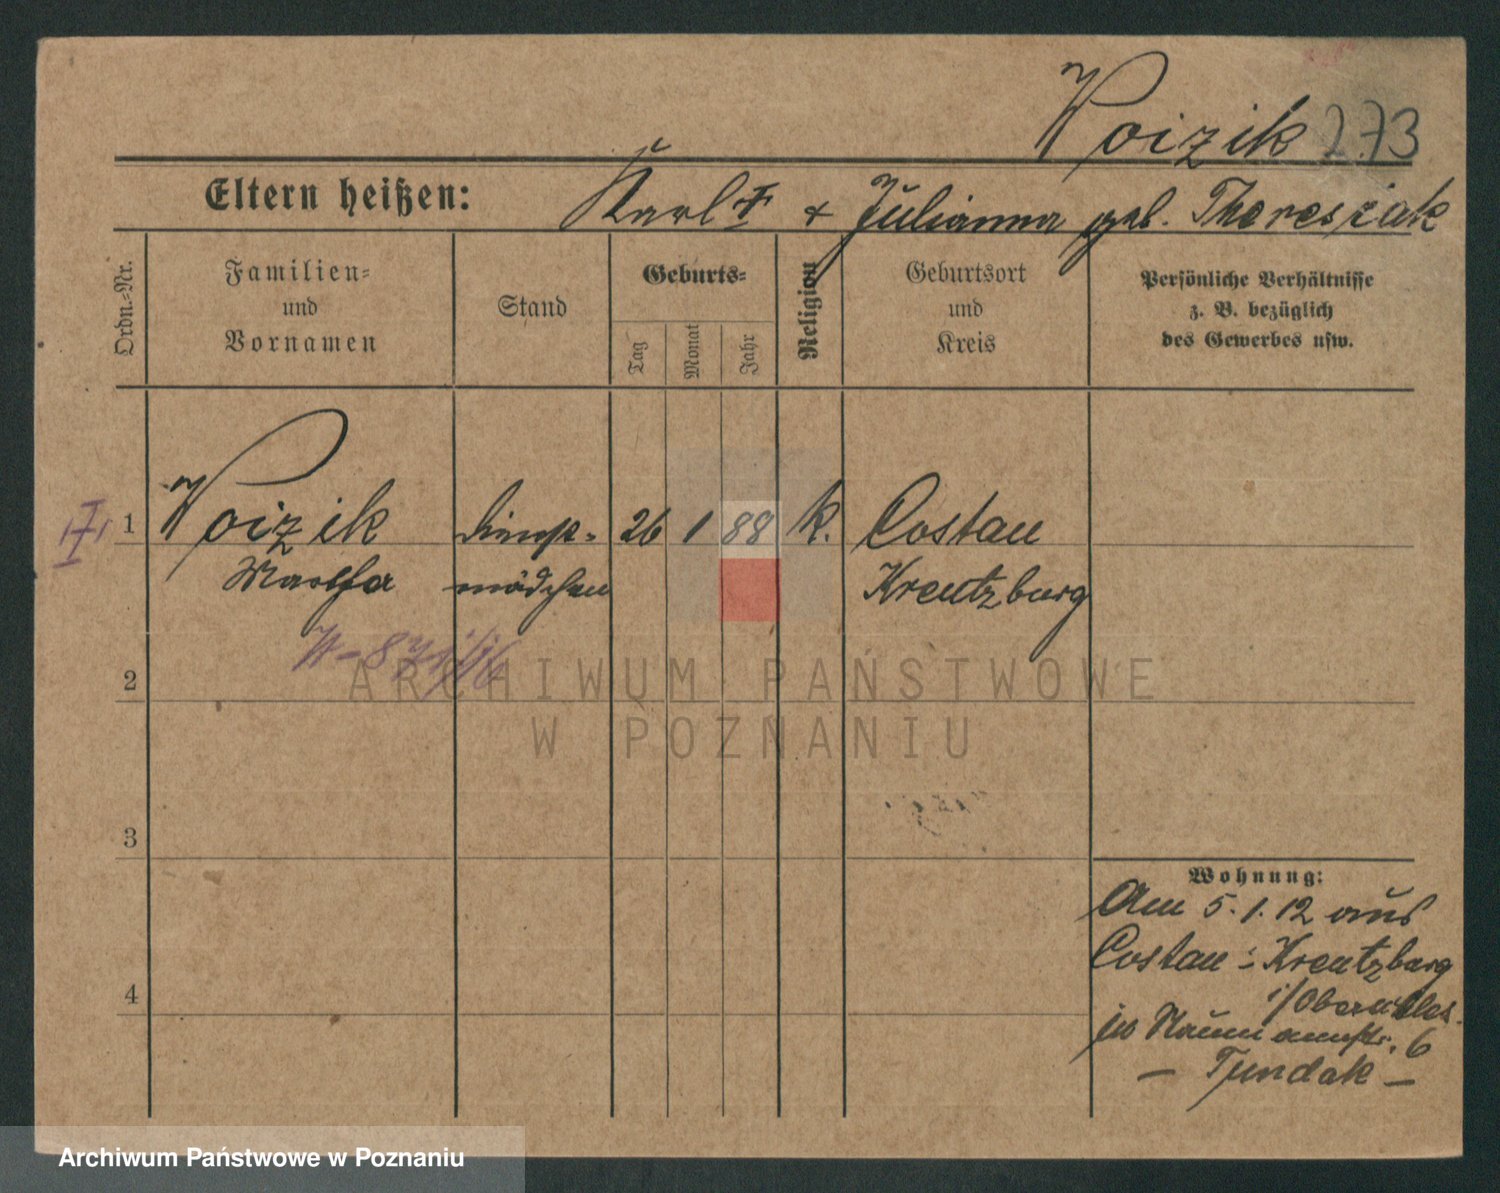 Woizik 273
Eltern heißen: Karl † + Julianna geb. Thereszak
Ordn.-Nr.
Familien-
und
Vornamen
Stand
Geburts-
Tag
Monat
Jahr
Religion
Geburtsort
und
Kreis
Persönliche Verhältnisse
z. B. bezüglich
des Gewerbes usw.
1 Woizik Dienst- 26 1 88 k. Costau
Martha mädchen Kreutzburg
2
ARCHIWUM PAŃSTWOWE
W POZNANIU
3
Wohnung:
Am 5. 1. 12 aus
Costau - Kreutzburg
i/Oberschles.
zu Naumannstr. 6
4
- Tundak -
Archiwum Państwowe w Poznaniu